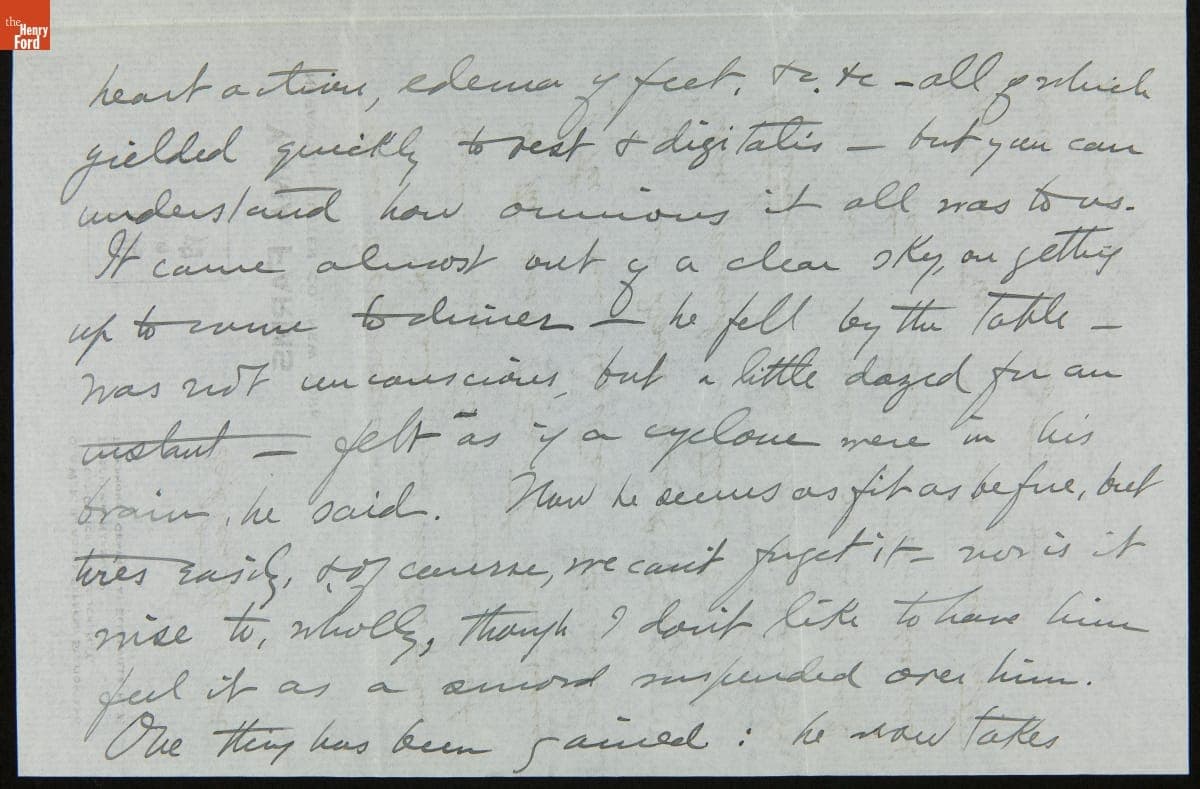 the
Henry
Ford
heart action, edema of feet, &c. &c – all of which
yielded quickly to rest & digitalis – but you can
understand how ominous it all was to us.
It came almost out of a clear sky, on getting
up to come to dinner – he fell by the table –
was not unconscious, but a little dazed for an
instant – felt as if a cyclone were in his
brain, he said. Now he seems as fit as before, but
tires easily, & of course, we can't forget it – nor is it
wise to, wholly, though I don't like to have him
feel it as a sword suspended over him.
One thing has been gained: he now takes